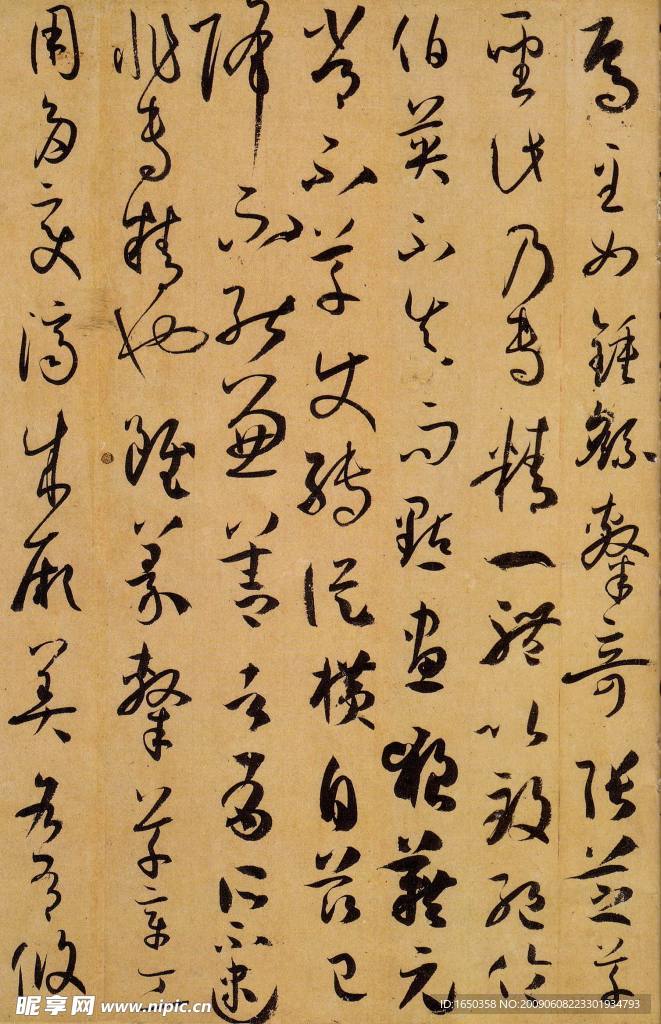 焉至如鍾繇隸奇張芝草
聖此乃專精一體以致絕倫
伯英不真而點畫狼藉元
常不草使轉縱橫自茲已
降不能兼善者有所不逮
非專精也雖篆隸草章工
用多變濟成厥美各有攸
昵享网 www.nipic.cn
ID:1650358 NO:20090608223301934793